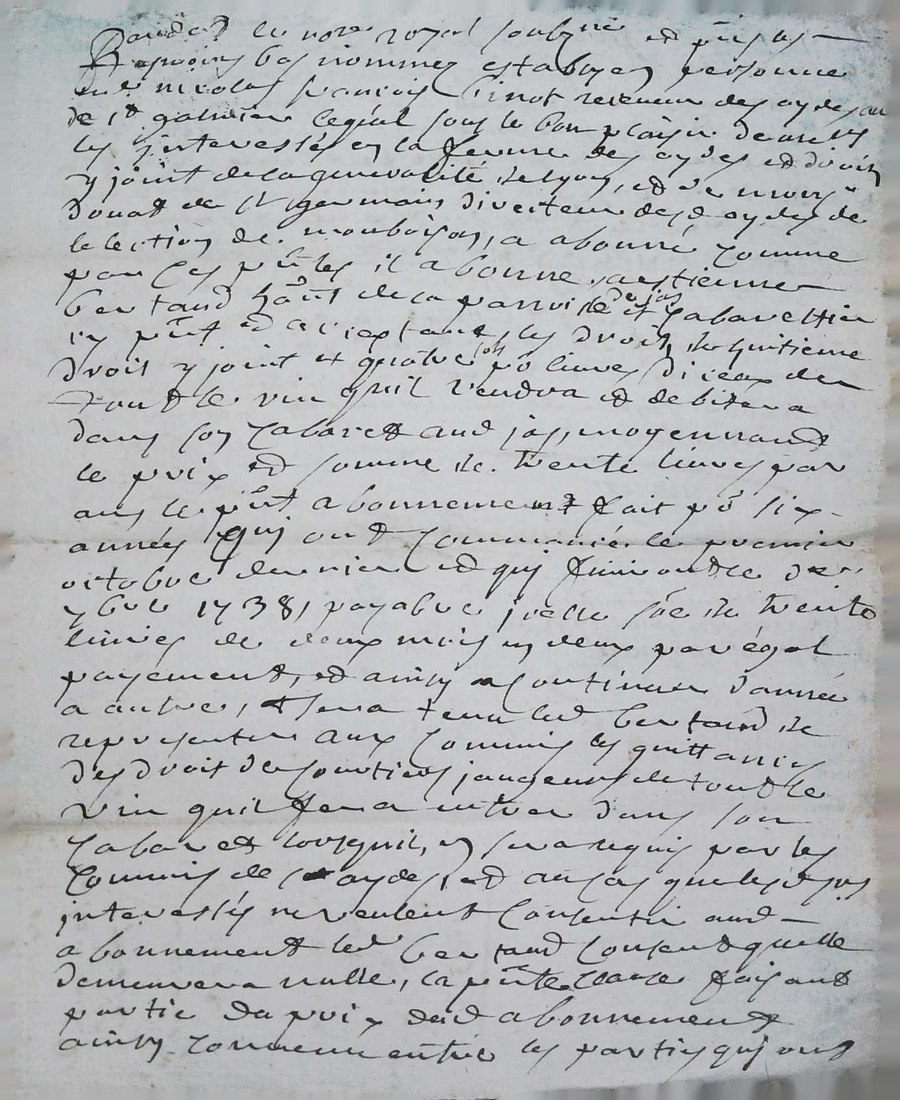 Pardevt le nore royal soubzné et présans
tesmoins bas nommez estably en personne
me nicolas francois pinot receveur des aydes au
de st galmier lequel sous le bon plaisir de mrs
les jnteressés en la ferme des aydes et droits
y joint de la generalité de lyon, et de monsr
donat de st germain directeur desd aydes de
lelection de monbrison, a abonné comme
par ces pntes il abonne a estienne
bertaud hant de la parroisse de jas et cabarettier
cy pnt et acceptant, les droits de huitieme
droit y joint et quatre sols po livre diceux de
tout le vin quil vendra et debitera
dans son cabarett aud jas, moyennand
le prix et somme de trente livres par
ans le pnt abonnement fait po six
années quj ont commancé le premier
octobre dernier et quj finiront le der
7bre 1738, payable jcelle soe de trente
livres de deux mois en deux par égal
payement, et ainsy a continuer dannée
a autre, sera tenu led bertaud de
representer aux commis les quittances
des droit de courtiers jaugeurs de tout le
vin quil fera entrer dans son
cabaret lorsquil en sera requis par les
commis des aydes, et au cas que lesd srs
jnteressés ne veulent consentir aud
abonnement led bertaud consent quelle
demeurera nulle, la pnte clause faisant
partie du prix dud abonnement
ainsy convenu entre les parties quj ont